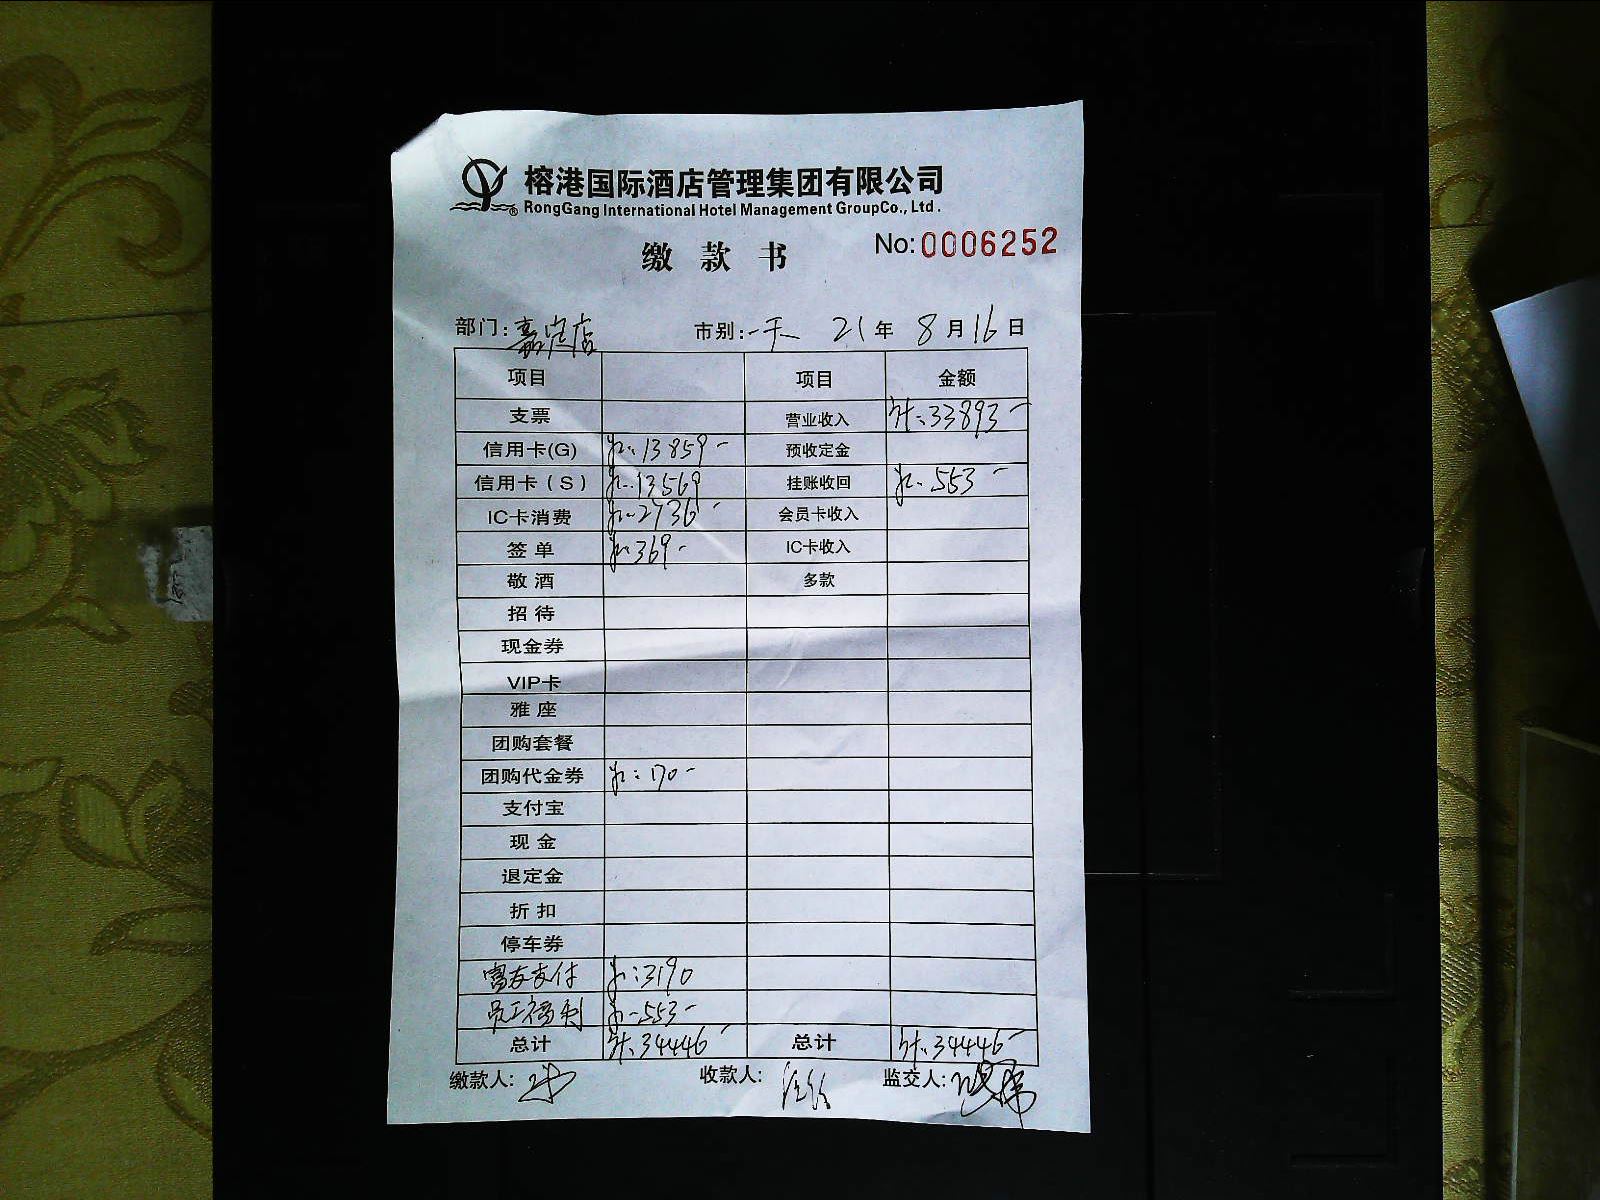 榕港国际酒店管理集团有限公司
RongGang International Hotel Management GroupCo., Ltd.
缴款书 No:0006252
部门:嘉定店 市别:一天 21年 8月16日
项目 项目 金额
支票 营业收入 计:33893-
信用卡(G) 13859- 预收定金
信用卡（S） 13569 挂账收回 553-
IC卡消费 2736- 会员卡收入
签单 369- IC卡收入
敬酒 多款
招待
现金券
VIP卡
雅座
团购套餐
团购代金券 170-
支付宝
现金
退定金
折扣
停车券
富友支付 3190
员工福利 553-
总计 计:34446- 总计 计:34446-
缴款人: 收款人: 监交人: